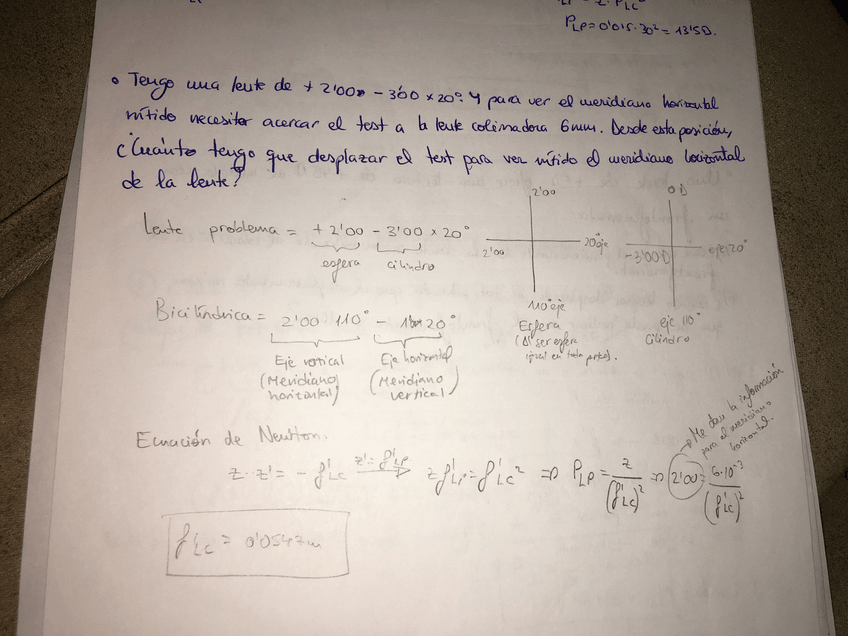 P_LP = 0'015·30² = 13'5D.
• Tengo una lente de + 2'00 - 3'00 × 20º. Y para ver el meridiano horizontal
nítido necesitor acercar el test a la lente colimadora 6mm. Desde esta posición,
¿Cuánto tengo que desplazar el test para ver nítido el meridiano horizontal
de la lente?
Lente problema = + 2'00 - 3'00 × 20º
esfera cilindro
2'00
2'00
20º eje
110º eje
Esfera
(Al ser esfera
igual en todas partes).
0 D
-3'00D
eje 20º
eje 110º
Cilindro
Bicilíndrica = 2'00 110º - 1 20º
Eje vertical
(Meridiano
horizontal)
Eje horizontal
(Meridiano
vertical)
Ecuación de Newton.
z · z' = - f'LC z' = f'LP ⇒ z f'LP = f'LC² ⇒ P_LP = z / (f'LC)² ⇒ 2'00 = 6·10⁻³ / (f'LC)²
Me dan la información
para el meridiano
horizontal.
f'LC = 0'0547m